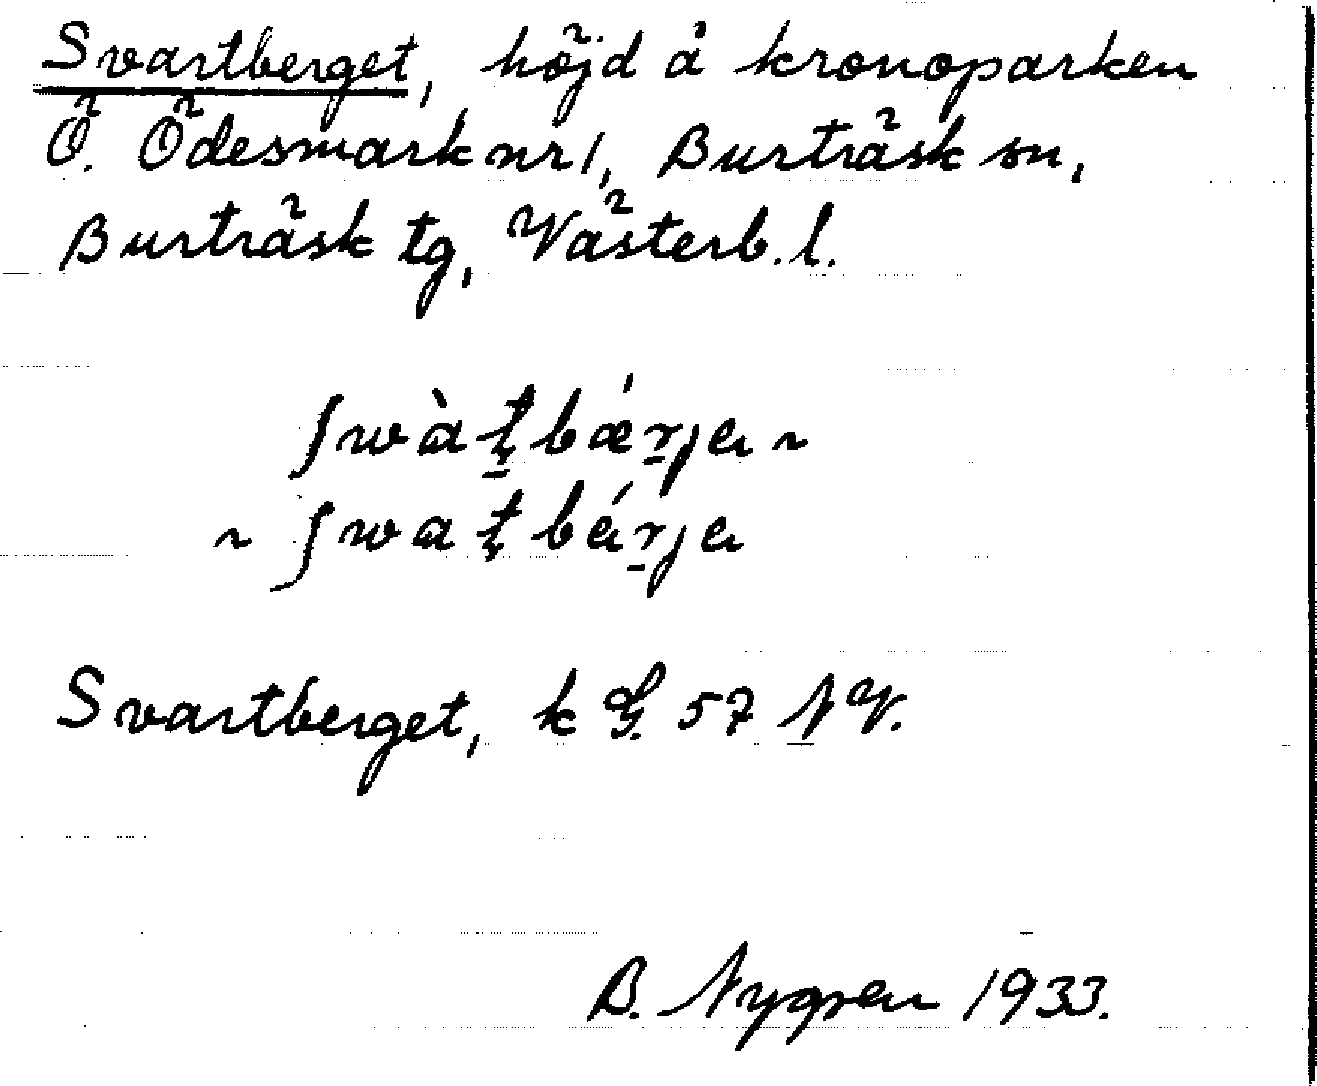 Svartberget, höjd å kronoparken
Ö. Ödesmark nr 1, Burträsk sn,
Burträsk tg, Västerb. l.
ʃwàt̠bǽr̠ja ~
~ ʃwat̠bár̠ja
Svartberget, k G. 57 NV.
B. Nygren 1933.